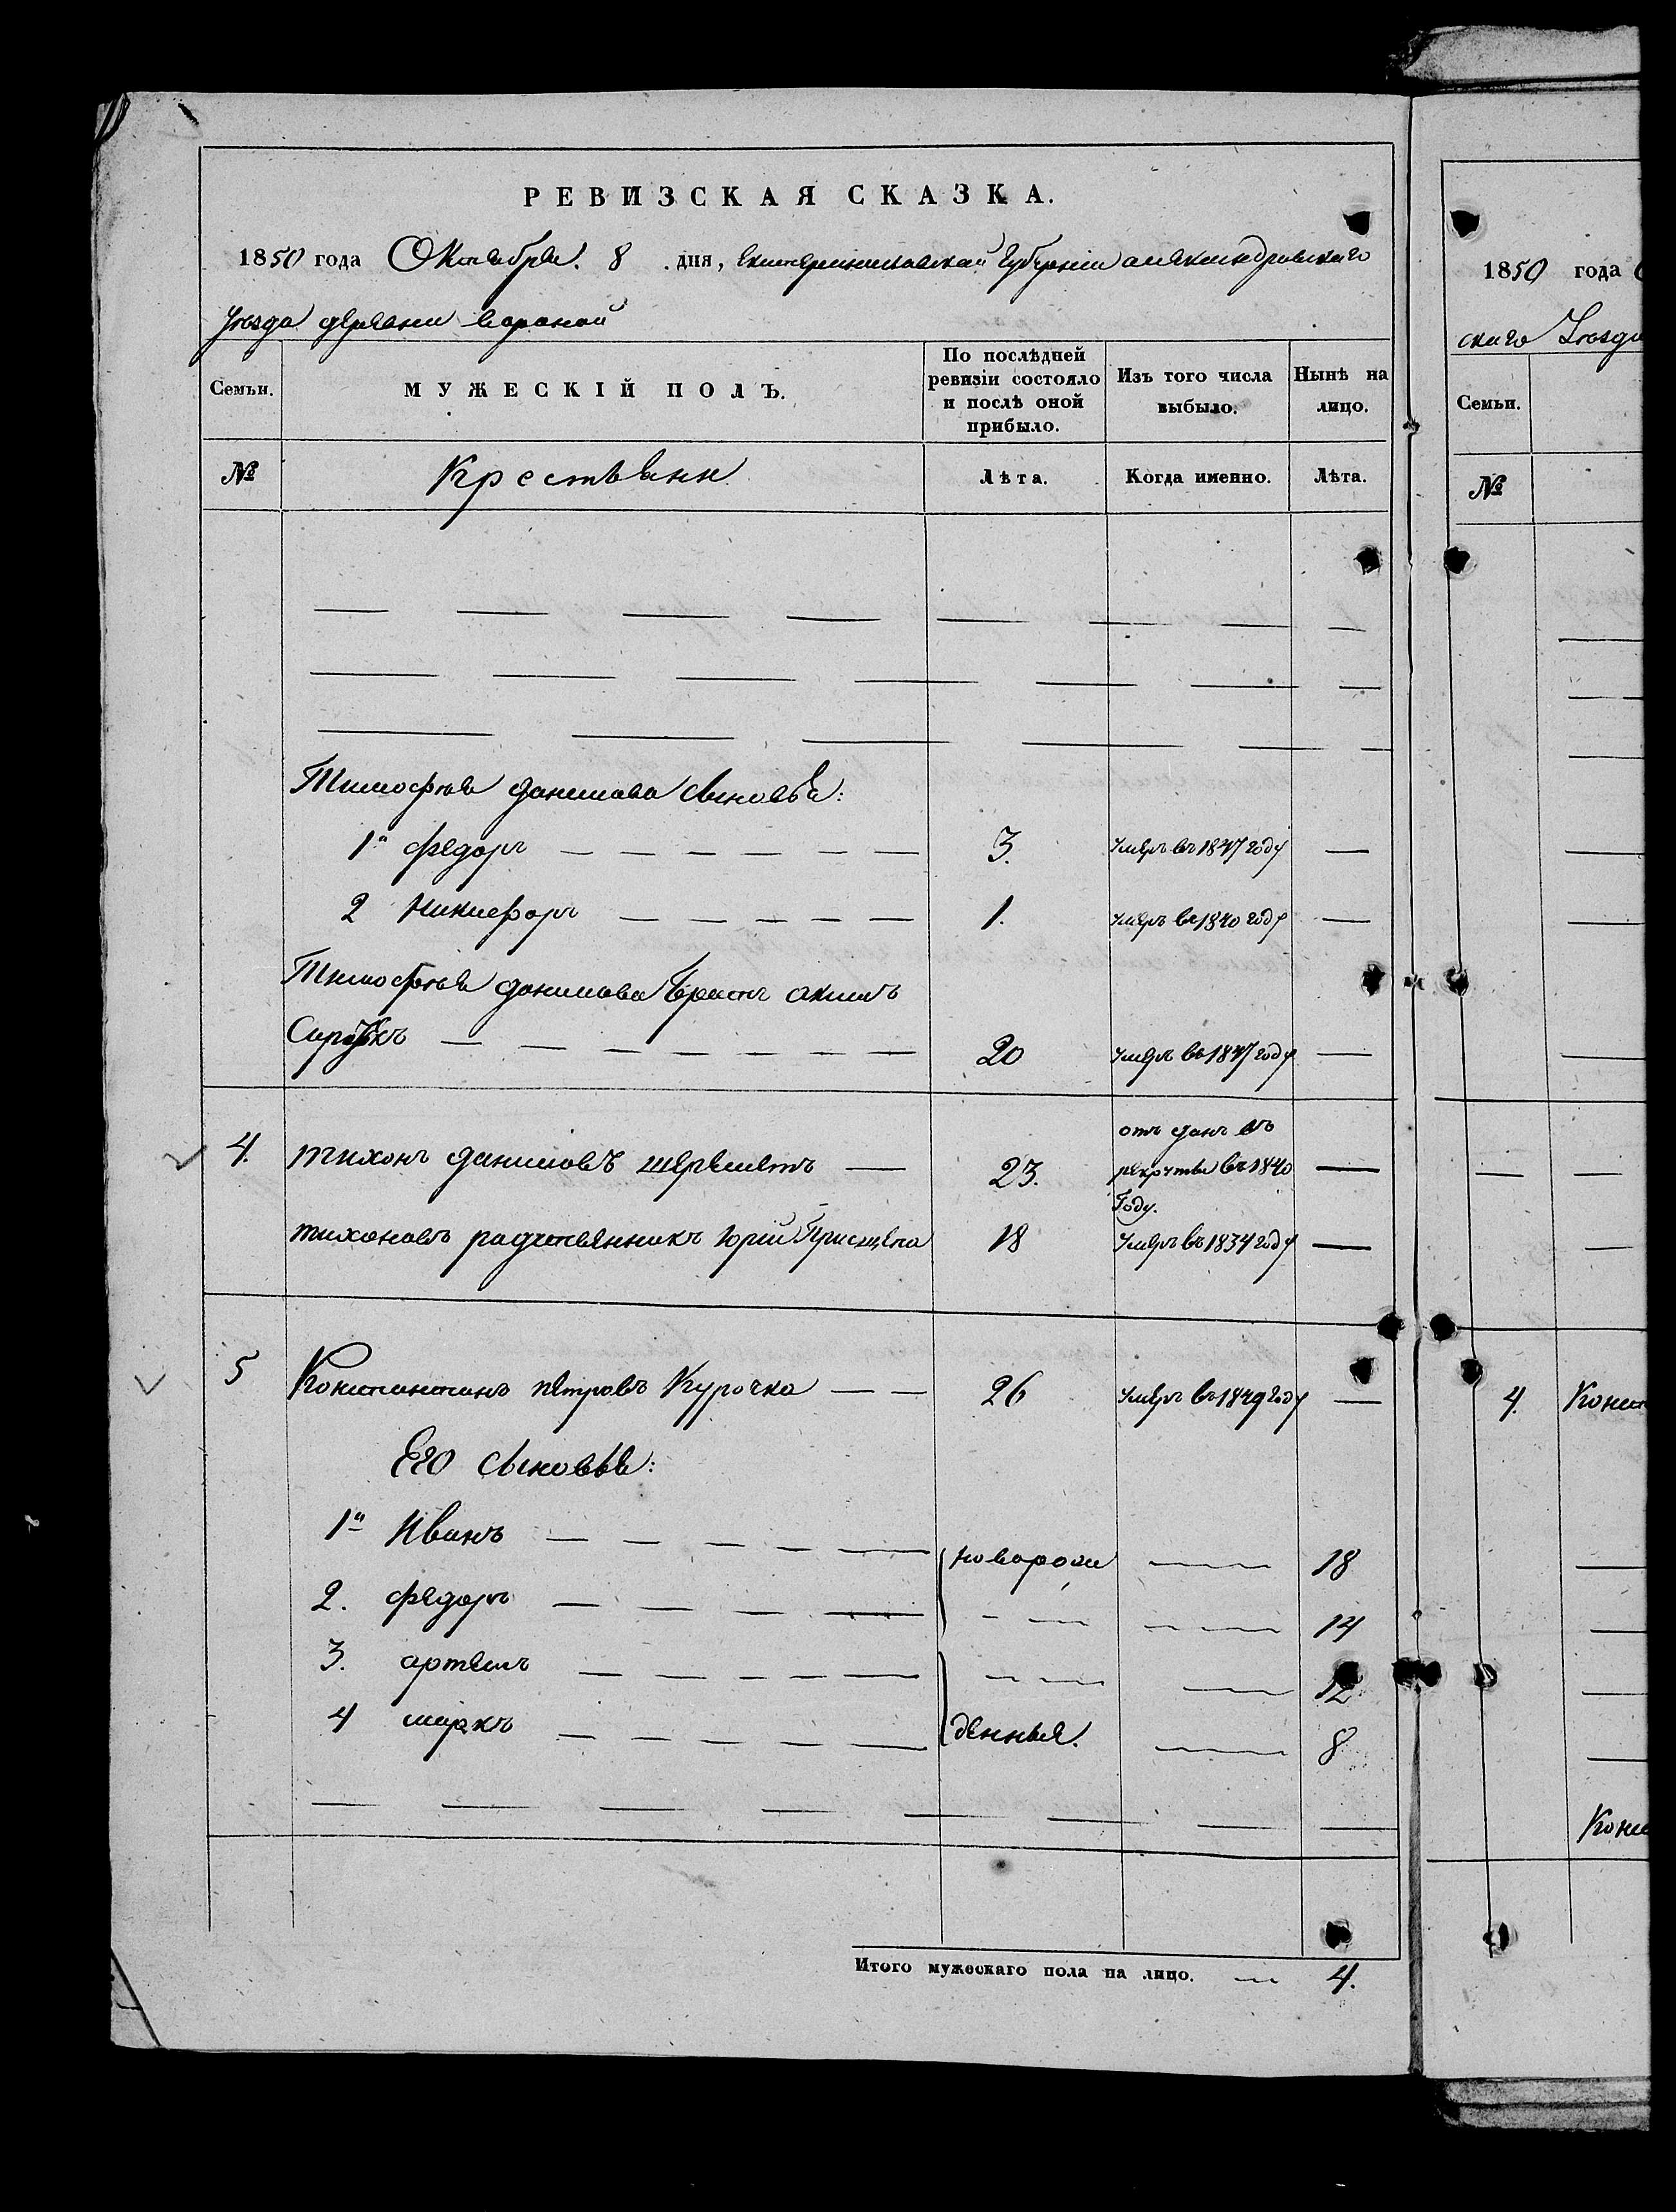 РЕВИЗСКАЯ СКАЗКА.
1850 года Октября. 8 дня, Екатеринославской Губернии александровскаго
Уезда деревни вороной
Семьи. МУЖЕСКІЙ ПОЛЪ. По послѣдней ревизіи состояло и послѣ оной прибыло. Изъ того числа выбыло. Нынѣ на лицо.
№ Крестьяни Лѣта. Когда именно. Лѣта.
Тимофѣя данилова сыновья:
1й федоръ 3. умеръ въ 1847 году
2 Никифоръ 1. умеръ въ 1840 году
Тимофѣя данилова братъ акимъ
20 умеръ въ 1847 году
4. тихонъ даниловъ шереметъ 23. отъ данъ въ рекруты въ 1840 Году.
тихоновъ родственникъ юрій Присщепа 18 умеръ въ 1834 году
5 Константинъ петровъ Курочка 26 умеръ въ 1849 году
Его сыновья:
1й Иванъ новорож 18
2. федоръ 14
3. артемъ 12
4 маркъ денныя. 8
Итого мужескаго пола на лицо. 4.
1850 года
скаго Уезда
Семьи.
№
4. Конст
Конс